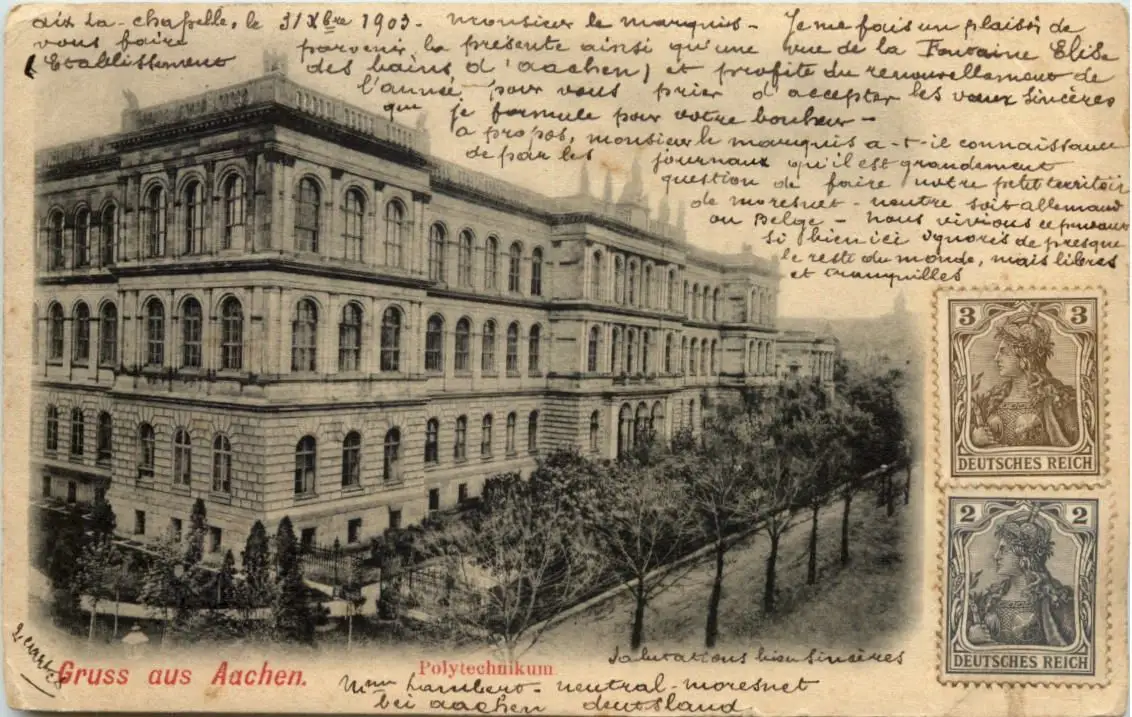 Aix La-chapelle, le 31 Xbre 1903. Monsieur le marquis - Je me fais un plaisir de
vous faire parvenir la présente ainsi qu'une vue de la Fontaine Elise
(Etablissement des bains d'aachen) et profite du renouvellement de
l'année pour vous prier d'accepter les voeux sincères
que je formule pour votre bonheur -
a propos, monsieur le marquis a-t-il connaissance
de par les journaux qu'il est grandement
question de faire notre petit territoir
de moresnet-neutre soit allemand
ou Belge - nous vivions ce pendant
si bien ici ignorés de presque
le reste du monde, mais libres
et tranquilles
3 3
DEUTSCHES REICH
2 2
DEUTSCHES REICH
Gruss aus Aachen.
Polytechnikum
Salutations bien sincères
Mme Lambert - neutral-moresnet
bei aachen deutsland